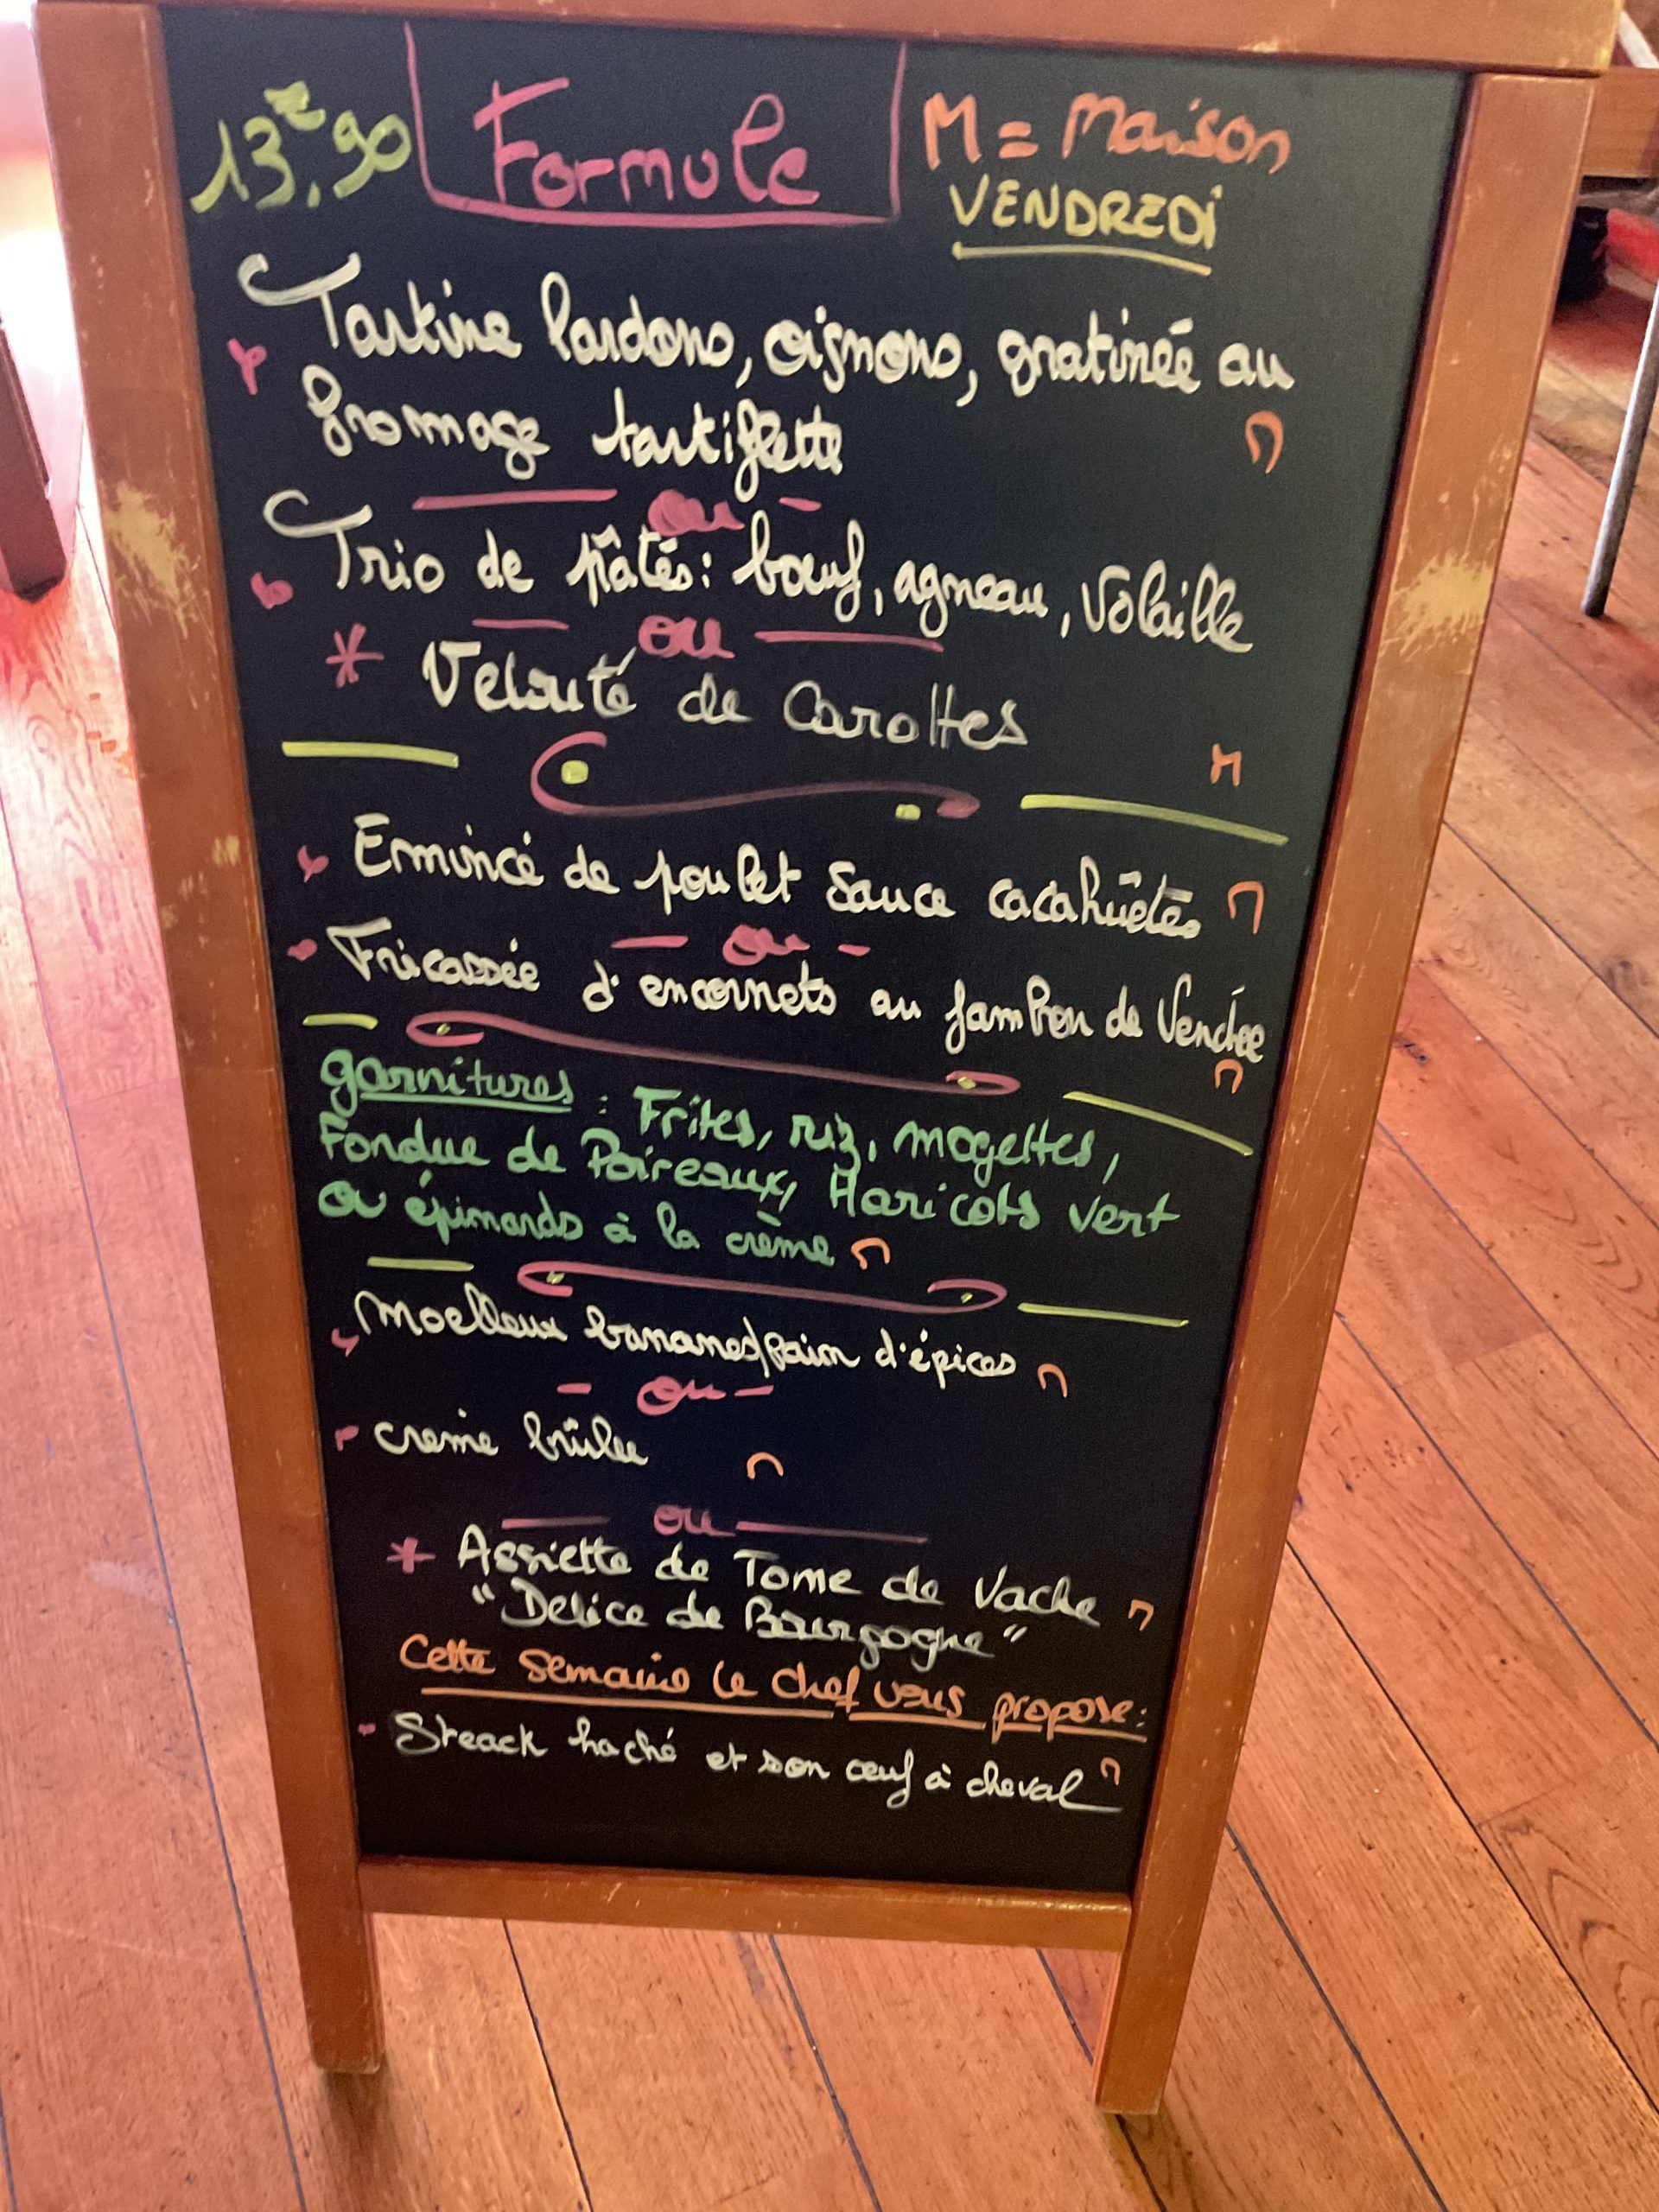 13€,90 Formule M = Maison
VENDREDI
Tartine lardons, oignons, gratinée au
fromage tartiflette M
ou
Trio de pâtés: bœuf, agneau, Volaille
ou
* Velouté de Carottes M
Emincé de poulet Sauce cacahuètes M
ou
Fricassée d'encornets au jambon de Vendée
M
garnitures : Frites, riz, mogettes,
Fondue de Poireaux, Haricots vert
ou épinards à la crème M
Moelleux bananes/pain d'épices M
ou
creme brûlée M
ou
* Assiette de Tome de Vache M
"Delice de Bourgogne"
Cette semaine le chef vous propose:
Steack haché et son œuf à cheval M